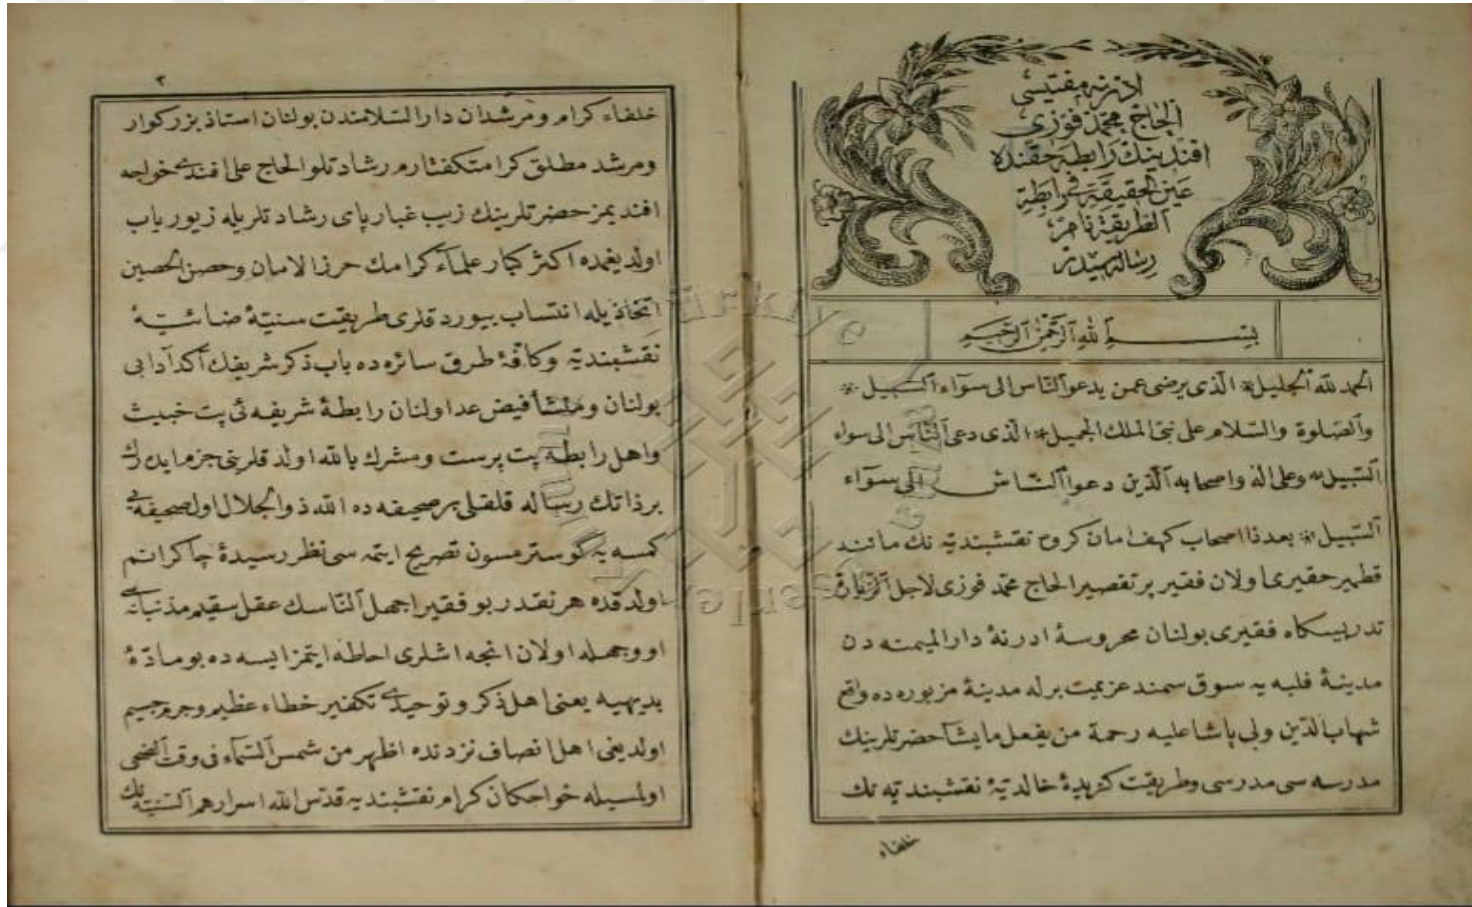 ادرنه مفتیسی
الحاج محمد فوزی
افندینك رابطه حقنده
عین الحقیقة فی رابطة
الطریقة نام
رساله سیدر
بسم الله الرحمن الرحیم
الحمد لله الجلیل * الذی یرضی عمن یدعو الناس الی سوآء السبیل *
والصلوة والسلام علی نبی الملك الجمیل * الذی دعی الناس الی سواء
السبیل * وعلی اله واصحابه الذین دعوا الناس الی سوآء
السبیل * بعدذا اصحاب كهف امان كروه نقشبندیه نك مانند
قطمیر حقیری اولان فقیر پر تقصیر الحاج محمد فوزی لاجل الزیارة
تدریسكاه فقیری بولنان محروسۀ ادرنۀ دار المیمنه دن
مدینۀ فلبه یه سوق سمند عزیمت برله مدینۀ مزبوره ده واقع
شهاب الدین ولی پاشا علیه رحمة من یفعل مایشآ حضرتلرینك
مدرسه سی مدرسی وطریقت كزیدۀ خالدیۀ نقشبندیه نك
خلفاء
٣
خلفاء كرام ومرشدان دار السلامندن بولنان استاذ بزركوار
ومرشد مطلق كرامتكفتارم رشادتلو الحاج علی افندی خواجه
افندیمز حضرتلرینك زیب غبار پای رشادتلریله زیوریاب
اولدیغمده اكثر كبار علمآء كرامك حرز الامان وحصن الحصین
اتخاذیله انتساب بیوردقلری طریقت سنیۀ ضائیۀ
نقشبندیه وكافۀ طرق سائره ده باب ذكر شریفك آكد آدابی
بولنان ومنشأ فیض عد اولنان رابطۀ شریفه ئی پت خبیث
واهل رابطه پت پرست ومشرك بالله اولدقلرینی جزم ایدرك
بر ذاتك رساله قلقلی بر صحیفه ده الله ذو الجلال اول صحیفه یی
كمسه یه كوسترمسون تصریح ایتمه سی نظر رسیدۀ چاكرانم
اولدقده هر نقدر بو فقیر اجهل الناسك عقل سقیم مذنبانه سی
اووجهله اولان انجه اشلری احاطه ایتمز ایسه ده بو مادۀ
بدیهیه یعنی اهل ذكر وتوحیدی تكفیر خطاء عظیم وجرم جسیم
اولدیغی اهل انصاف نزدنده اظهر من شمس السمآء فی وقت الضحی
اولمسیله خواجكان كرام نقشبندیه قدس الله اسرارهم السنیه نك